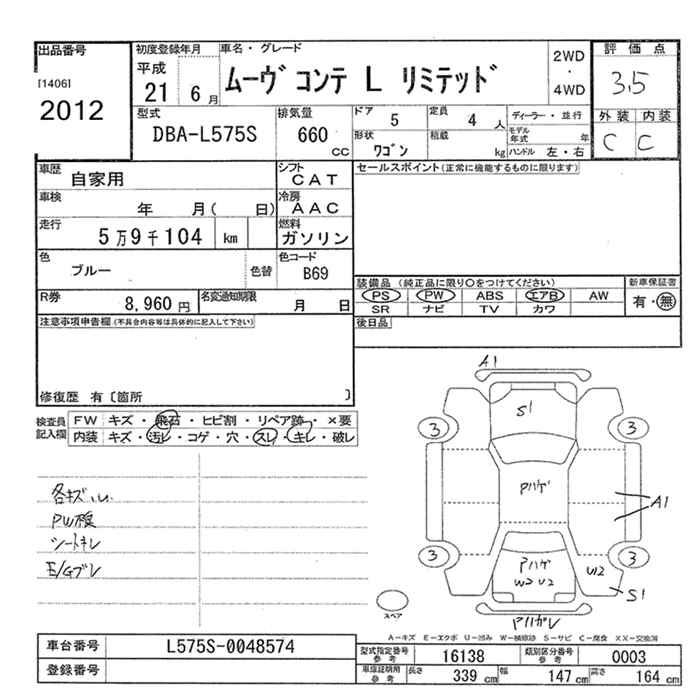 出品番号
[1406]
2012
初度登録年月
平成
21 6 月
車名・グレード
ムーヴ コンテ L リミテッド
2WD
・
4WD
評価点
3.5
外装 内装
C C
型式
DBA-L575S
排気量
660 CC
ドア 5
定員 4 人
ディーラー・並行
形状 ワゴン
積載 kg
モデル年式 年
ハンドル 左・右
車歴 自家用
シフト CAT
車検 年 月( 日)
冷房 AAC
走行 5万9千104 km
燃料 ガソリン
色 ブルー 色替
色コード B69
R券 8,960 円
名変通知期限 月 日
セールスポイント(正常に機能するものに限ります)
装備品 (純正品に限り○をつけてください)
PS PW ABS エアB AW
SR ナビ TV カワ
新車保証書
有・無
後日品
注意事項申告欄(不具合内容等は具体的に記入して下さい)
修復歴 有〔箇所 〕
検査員記入欄
FW キズ・飛石・ヒビ割・リペア跡・×要
内装 キズ・汚レ・コゲ・穴・スレ・キレ・破レ
各キズ
PW横
シートキレ
E/Gブレ
A1
S1
3 3
Pハゲ
A1
3 3
Pハゲ
W2 U2
U12
S1
Pハガレ
スペア
A-キズ E-エクボ U-凹み W-補修跡 S-サビ C-腐食 XX-交換済
車台番号 L575S-0048574
登録番号
型式指定番号 参考 16138
類別区分番号 参考 0003
車庫証明用 参考 長さ 339 cm 幅 147 cm 高さ 164 cm